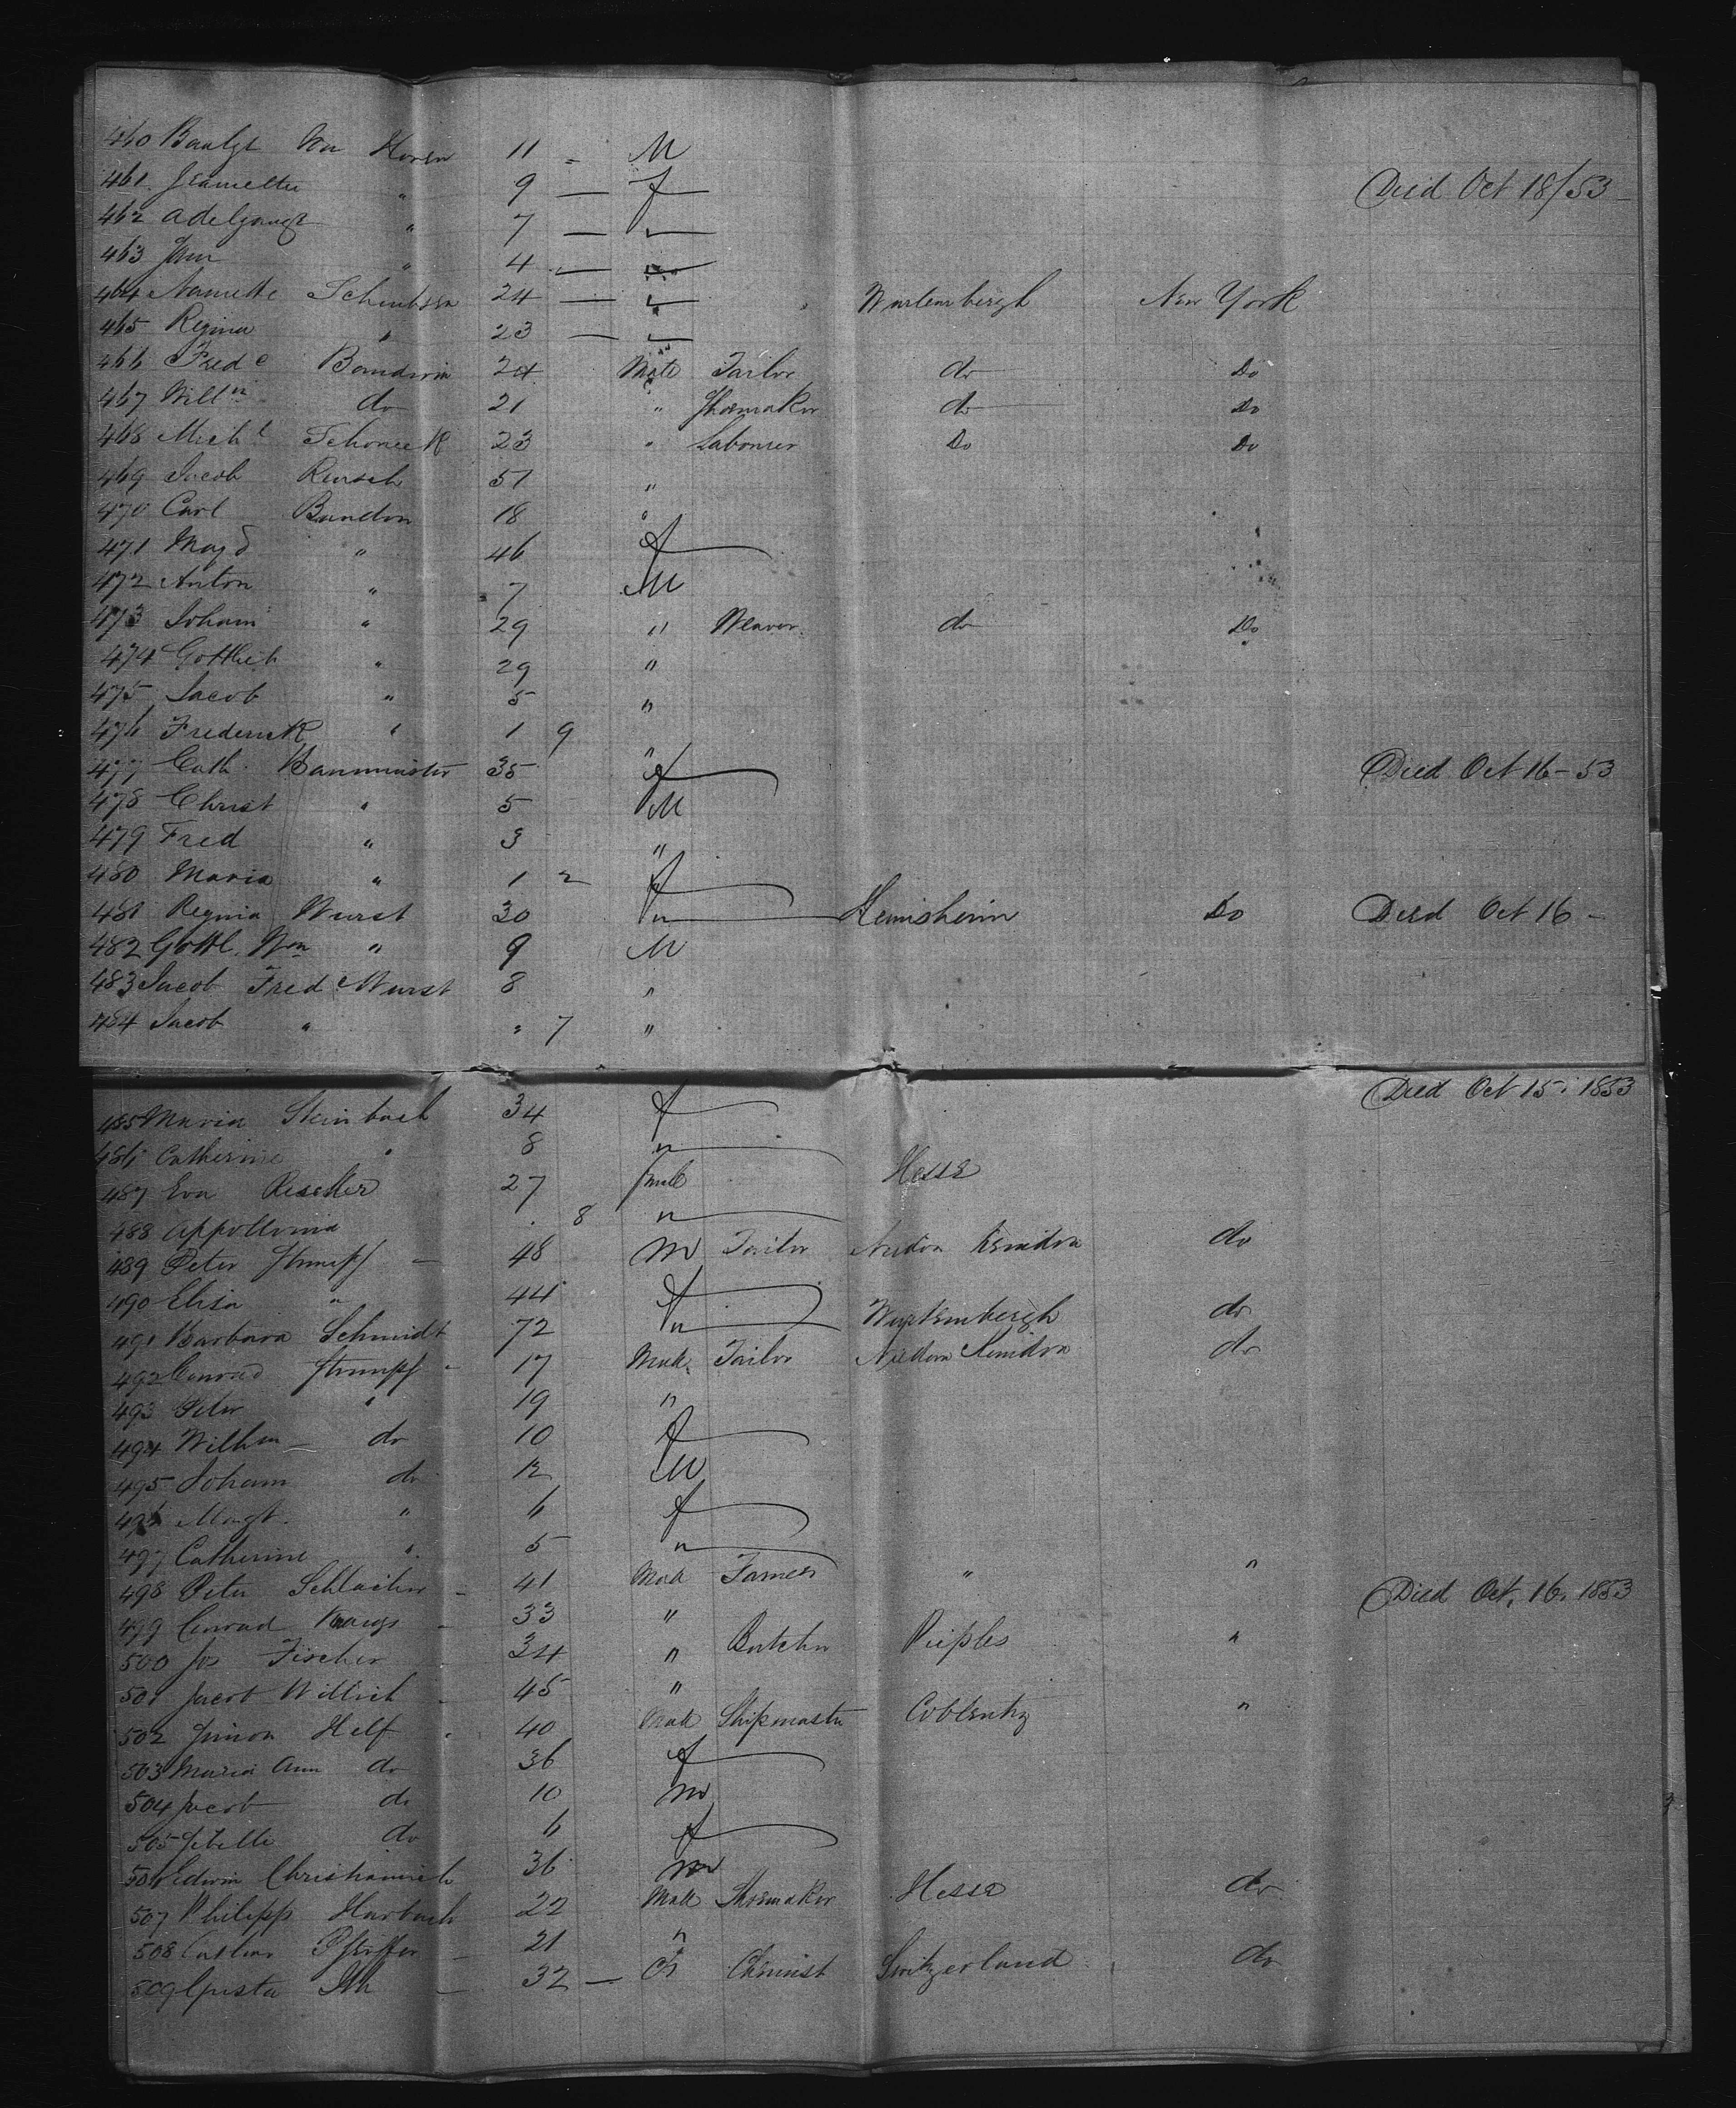 460 Baalgt Van Hoven 11 - M
461 Jeanette " 9 — f Died Oct 18/53
462 " 7 — "
463 Jann " 4 — "
464 Nannette 24 — " Wurtembergh New York
465 Regina " 23 — "
466 Fred^c 24 Male Tailor do Do
467 Will^m do 21 " Shoemaker do Do
468 Mich^l Schoneck 23 " Labourer Do Do
469 Jacob 51 "
470 Carl 18 "
471 Magd " 46 f
472 Anton " 7 M
473 Johann " 29 " Weaver do Do
474 Gottlieb " 29 "
475 Jacob " 5 "
476 Frederick " 1 9 "
477 Cath. Baumeister 35 f Died Oct 16 - 53
478 Christ " 5 M
479 Fred " 3 "
480 Maria " 1 2 f
481 Regina Wurst 30 " Heimsheim Do Died Oct 16 -
482 Gottl. Wm " 9 M
483 Jacob Fred Wurst 8 "
484 Jacob " " 7 "
485 Maria Steinbach 34 f Died Oct 15. 1853
486 Catherine " 8 "
487 Eva 27 fmale Hesse
488 Appollonia 8 "
489 Peter Strumpf - 48 M Tailor do
490 Elisa " 44 f
491 Barbara Schmidt 72 " Wurtembergh do
492 Conrad Strumpf - 17 Male Tailor do
493 Peter " 19 "
494 Wilhm do 10 f
495 Johann do 12 M
496 Margt. " 6 f
497 Catherine " 5 "
498 Peter - 41 Male Farmer " "
499 Conrad - 33 " Died Oct. 16. 1853
500 Jos Fischer 34 " Butcher "
501 Jacob Wittich - 45 "
502 Helf 40 Male Shipmaster Coblentz "
503 Maria Ann do 36 f
504 Jacob do 10 M
505 do 6 f
506 Edwin 36 M
507 Philipp Harbach 22 Male Shoemaker Hesse do
508 Pfeiffer - 21 "
509 - 32 — Chemist Switzerland do